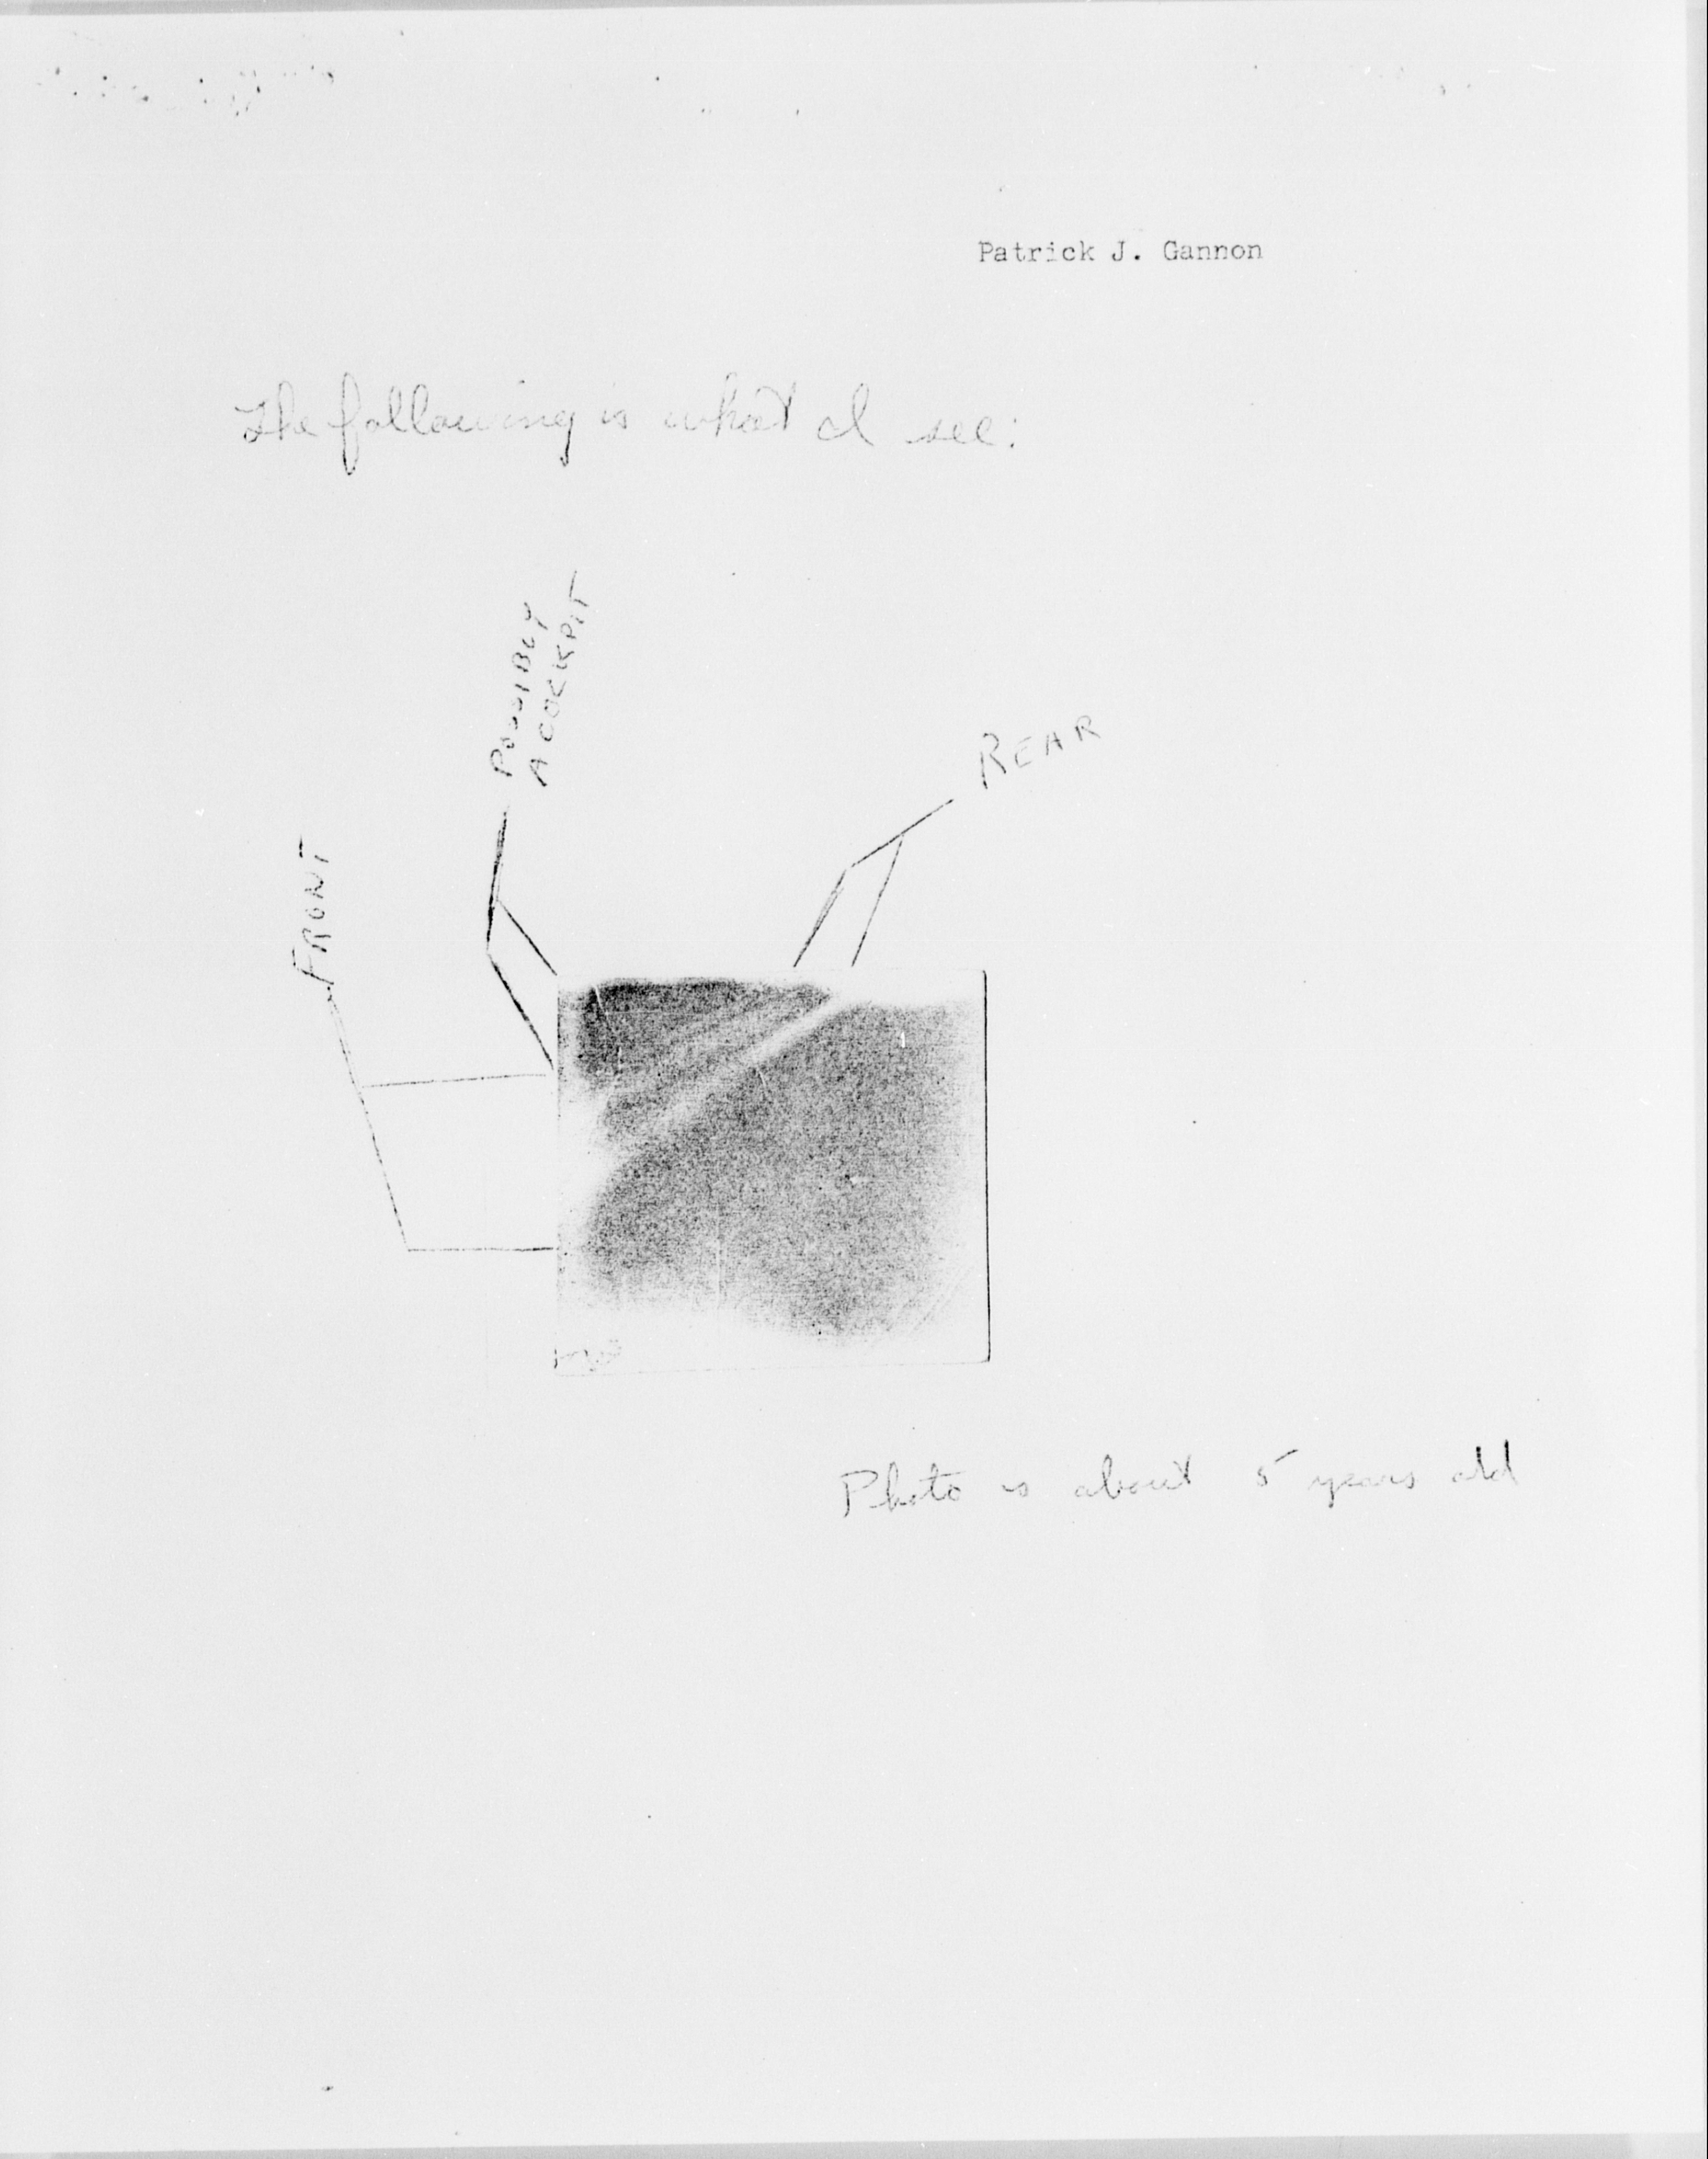 Patrick J. Gannon
The following is what I see:
POSSIBLY
A COCKPIT
REAR
FRONT
Photo is about 5 years old